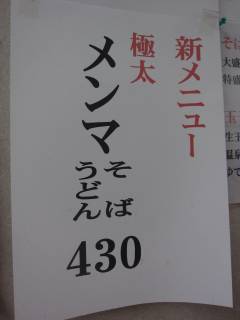 新メニュー
極太
メンマ
そば
うどん
430
そば
大盛
特盛
玉
生玉
温泉
ゆで